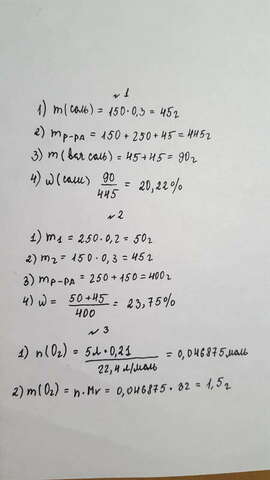 №1
1) m(соль) = 150·0,3 = 45г
2) mр-ра = 150 + 250 + 45 = 445г
3) m(вся соль) = 45+45 = 90г
4) ω(соли) 90/445 = 20,22%
№2
1) m1 = 250·0,2 = 50г
2) m2 = 150·0,3 = 45г
3) mр-ра = 250+150 = 400г
4) ω = 50+45/400 = 23,75%
№3
1) n(O2) = 5л·0,21/22,4л/моль = 0,046875моль
2) m(O2) = n·Mr = 0,046875·32 = 1,5г